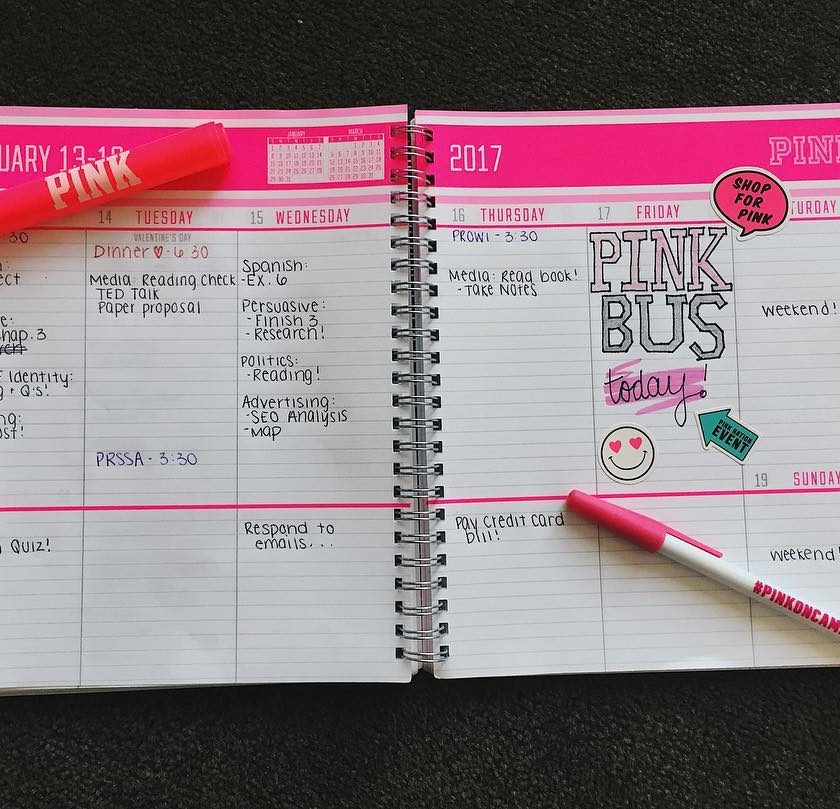 UARY 13-19
PINK
JANUARY
MARCH
14 TUESDAY
VALENTINE'S DAY
Dinner ♡ - 6:30
Media: Reading Check
TED Talk
Paper proposal
PRSSA - 3:30
15 WEDNESDAY
Spanish:
-EX. 6
Persuasive:
- Finish 3
- Research!
Politics:
- Reading!
Advertising:
- SEO Analysis
- Map
Respond to
emails...
30
ect
e:
hap. 3
Identity:
+ Q's!
ng:
ost!
Quiz!
2017
PINK
16 THURSDAY
PROWL - 3:30
Media: Read book!
- Take Notes
Pay credit card
bill!
17 FRIDAY
PINK
BUS
today!
PINK NATION
EVENT
SHOP
FOR
PINK
TURDAY
weekend!
19 SUNDAY
weekend!
#PINKONCAM